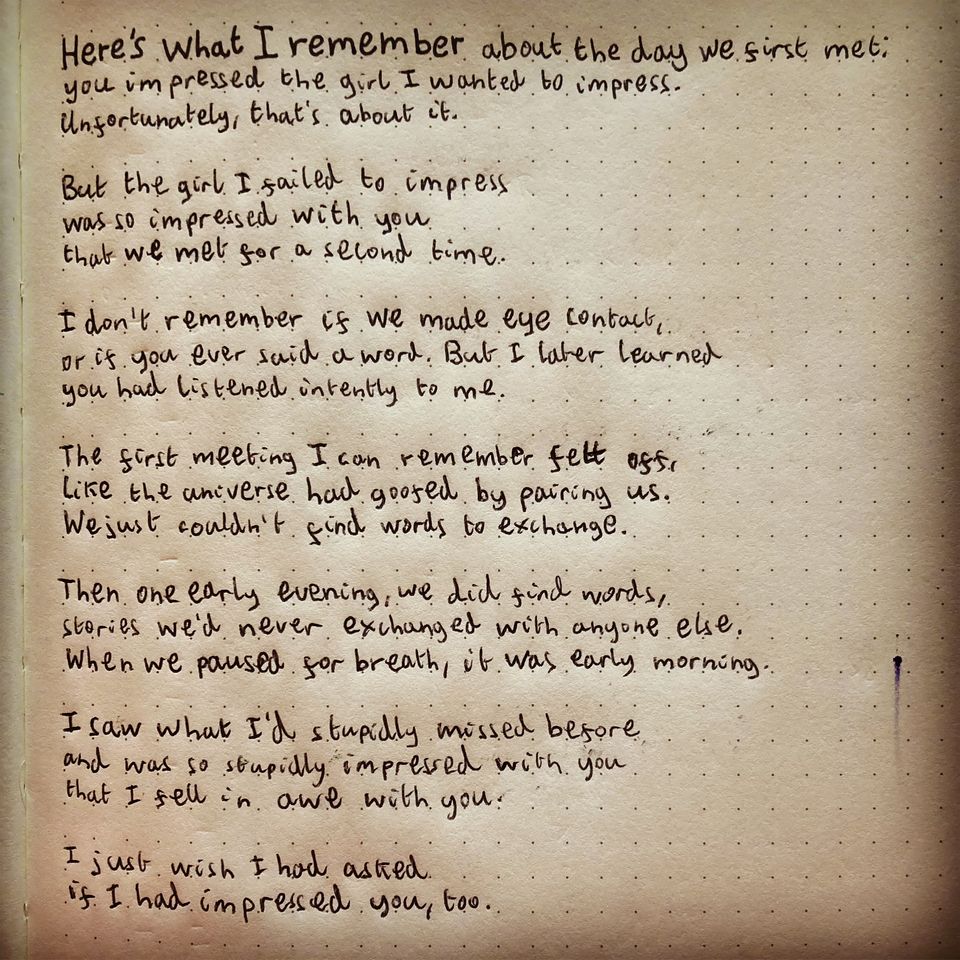 Here's what I remember about the day we first met:
you impressed the girl I wanted to impress.
Unfortunately, that's about it.
But the girl I failed to impress
was so impressed with you
that we met for a second time.
I don't remember if we made eye contact,
or if you ever said a word. But I later learned
you had listened intently to me.
The first meeting I can remember felt off,
like the universe had goofed by pairing us.
We just couldn't find words to exchange.
Then one early evening, we did find words,
stories we'd never exchanged with anyone else.
When we paused for breath, it was early morning.
I saw what I'd stupidly missed before
and was so stupidly impressed with you
that I fell in awe with you.
I just wish I had asked
if I had impressed you, too.